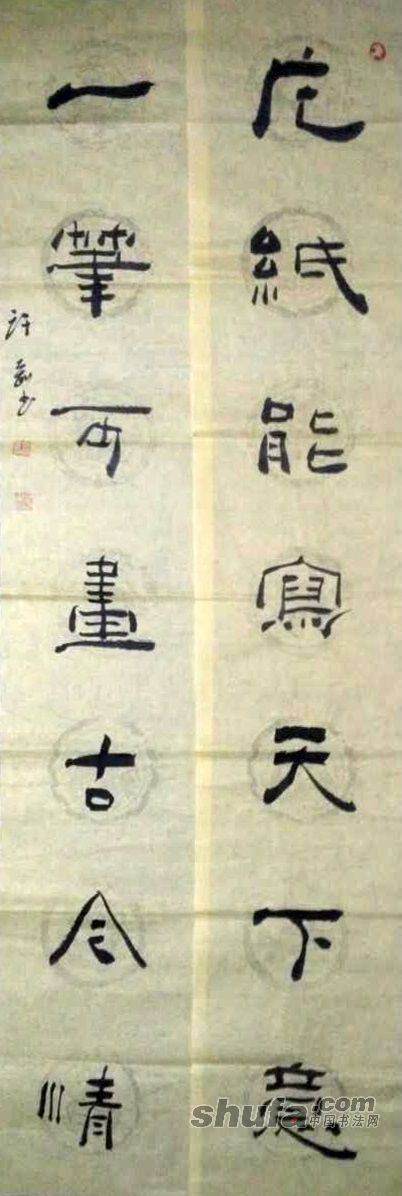 片紙能寫天下意
一筆可畫古今情
許 書
shufa.com
中国书法网